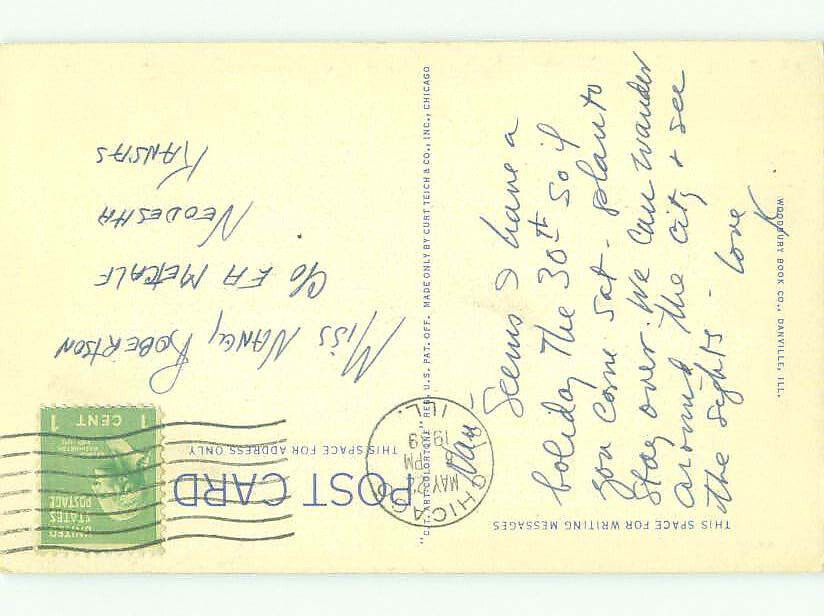 THIS SPACE FOR WRITING MESSAGES
Nan -
Seems I have a
holiday the 30th so if
you come sat. plan to
stay over. We can wander
around the city + see
the sights - love
K.
WOODBURY BOOK CO., DANVILLE, ILL.
"C.T. ART-COLORTONE" REG. U.S. PAT. OFF. MADE ONLY BY CURT TEICH & CO., INC., CHICAGO
POST CARD
THIS SPACE FOR ADDRESS ONLY
CHICAGO
MAY 22
PM
1939
ILL.
UNITED
STATES
POSTAGE
1 CENT 1
MISS NANCY ROBERTSON
c/o E A METCALF
NEODESHA
KANSAS